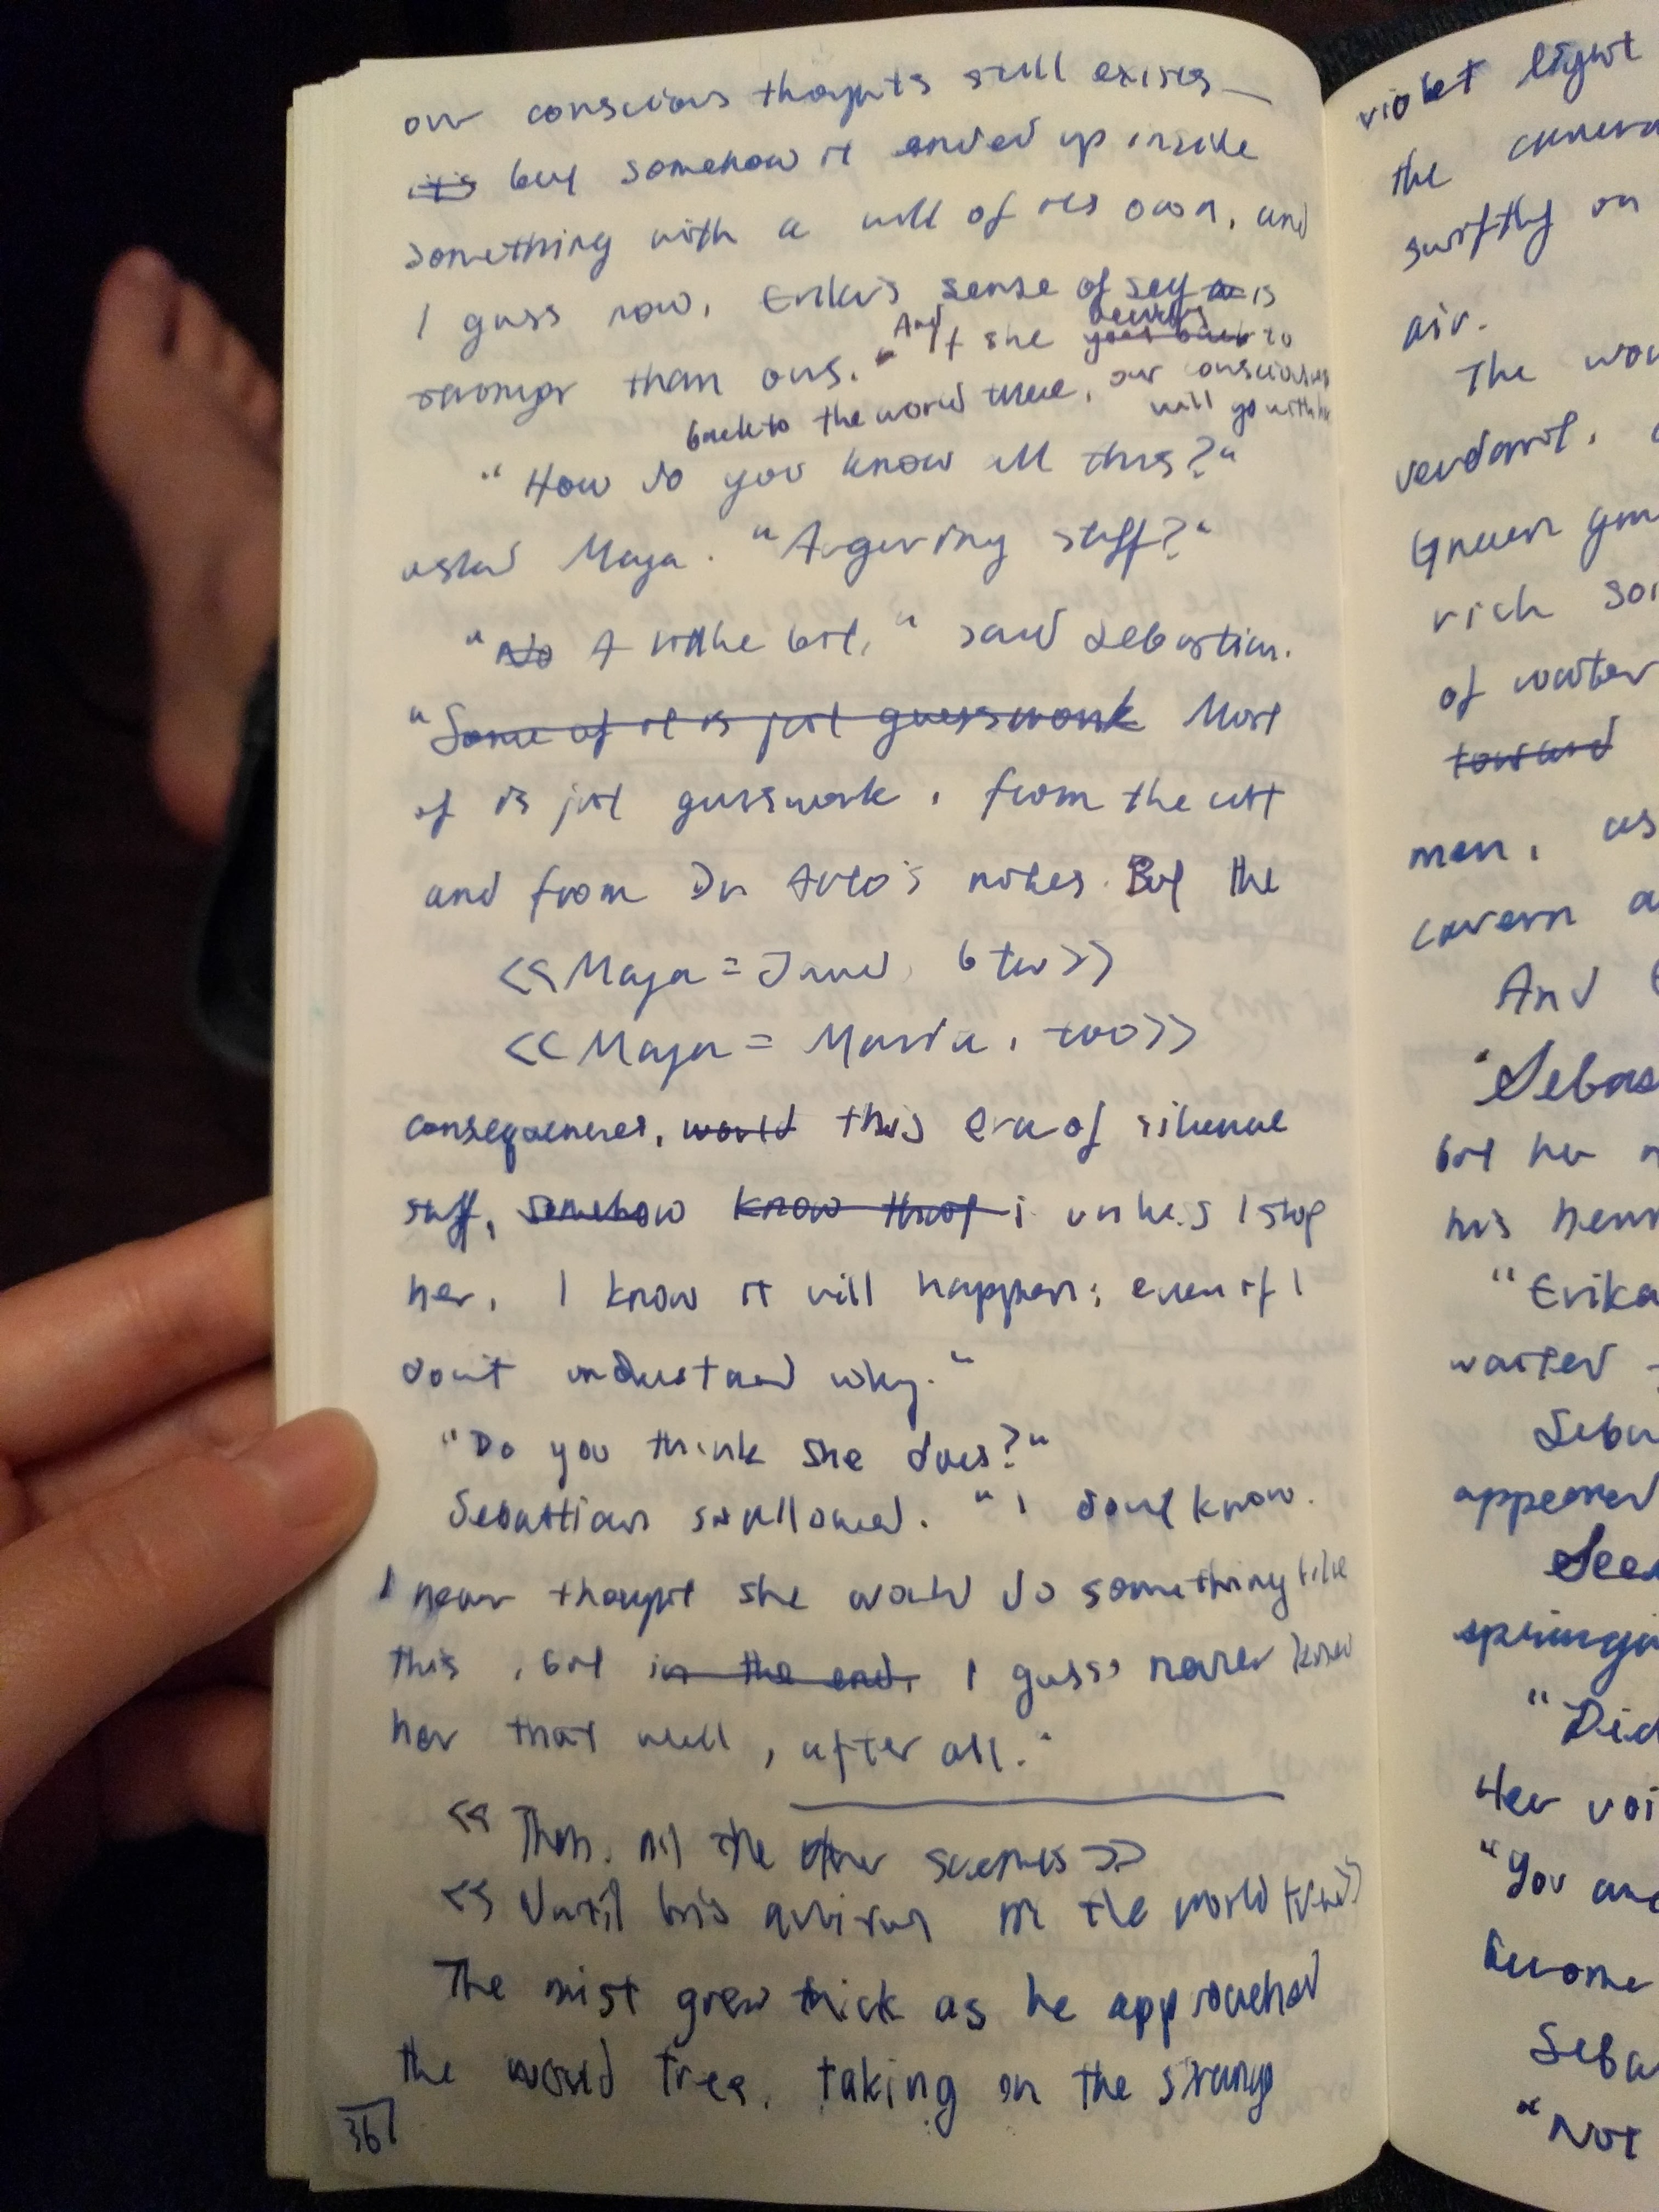 our conscious thoughts still exists—
it's but somehow it ended up inside
something with a will of its own, and
I guess now, Erika's sense of self is
stronger than ours." And if she decides goes back to
back to the world tree, our consciousness
will go with her
"How do you know all this?"
asked Maya. "Augering stuff?"
"No A little bit," said Sebastian.
"Some of it is just guesswork Most
of is just guesswork, from the
and from Dr notes. But the
<<Maya = Jane, btw>>
<<Maya = Maria, too>>
consequences, would this era of silence
stuff, somehow know that unless I stop
her, I know it will happen; even if I
don't understand why."
"Do you think she does?"
Sebastian swallowed. "I don't know.
I never thought she would do something like
this, but in the end, I guess never knew
her that well, after all."
<<Then, all the other scenes>>
<<Until his arrival at the world tree>>
The mist grew thick as he approached
the world tree, taking on the strange
36
violet light
the
swiftly on
air.
The
verdant,
Green
rich
of water
toward
men, as
cavern
And
"Sebas
but her
his
"Erika
waited
Seba
appeared
See
springi
"Did
Her voi
"You
become
Seba
"Not